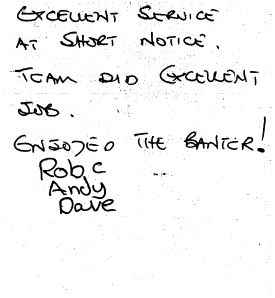 EXCELLENT SERVICE
AT SHORT NOTICE.
TEAM DID EXCELLENT
JOB.
ENJOYED THE BANTER!
Rob, C
Andy
Dave